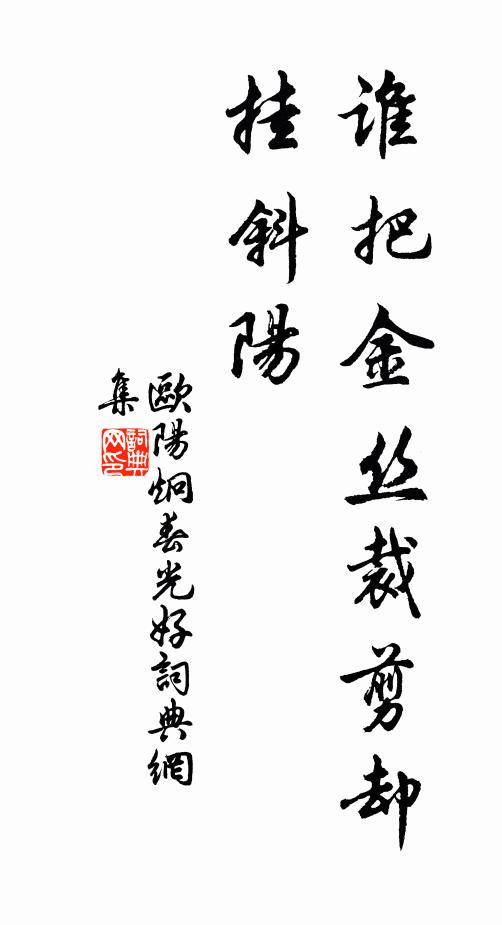 谁把金丝裁剪却
挂斜陽
歐陽炯春光好詞典網
集
詞典
网印